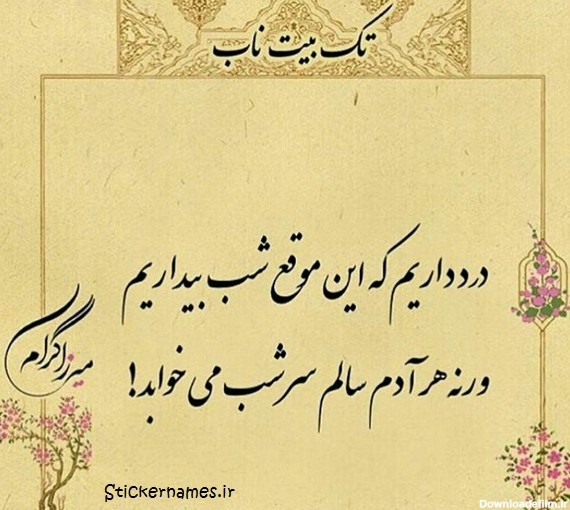 تک بیت ناب
درد داریم که این موقع شب بیداریم
ورنه هر آدم سالم سر شب می خوابد!
میرزاگرام
Stickernames.ir
Downloadefilm.ir